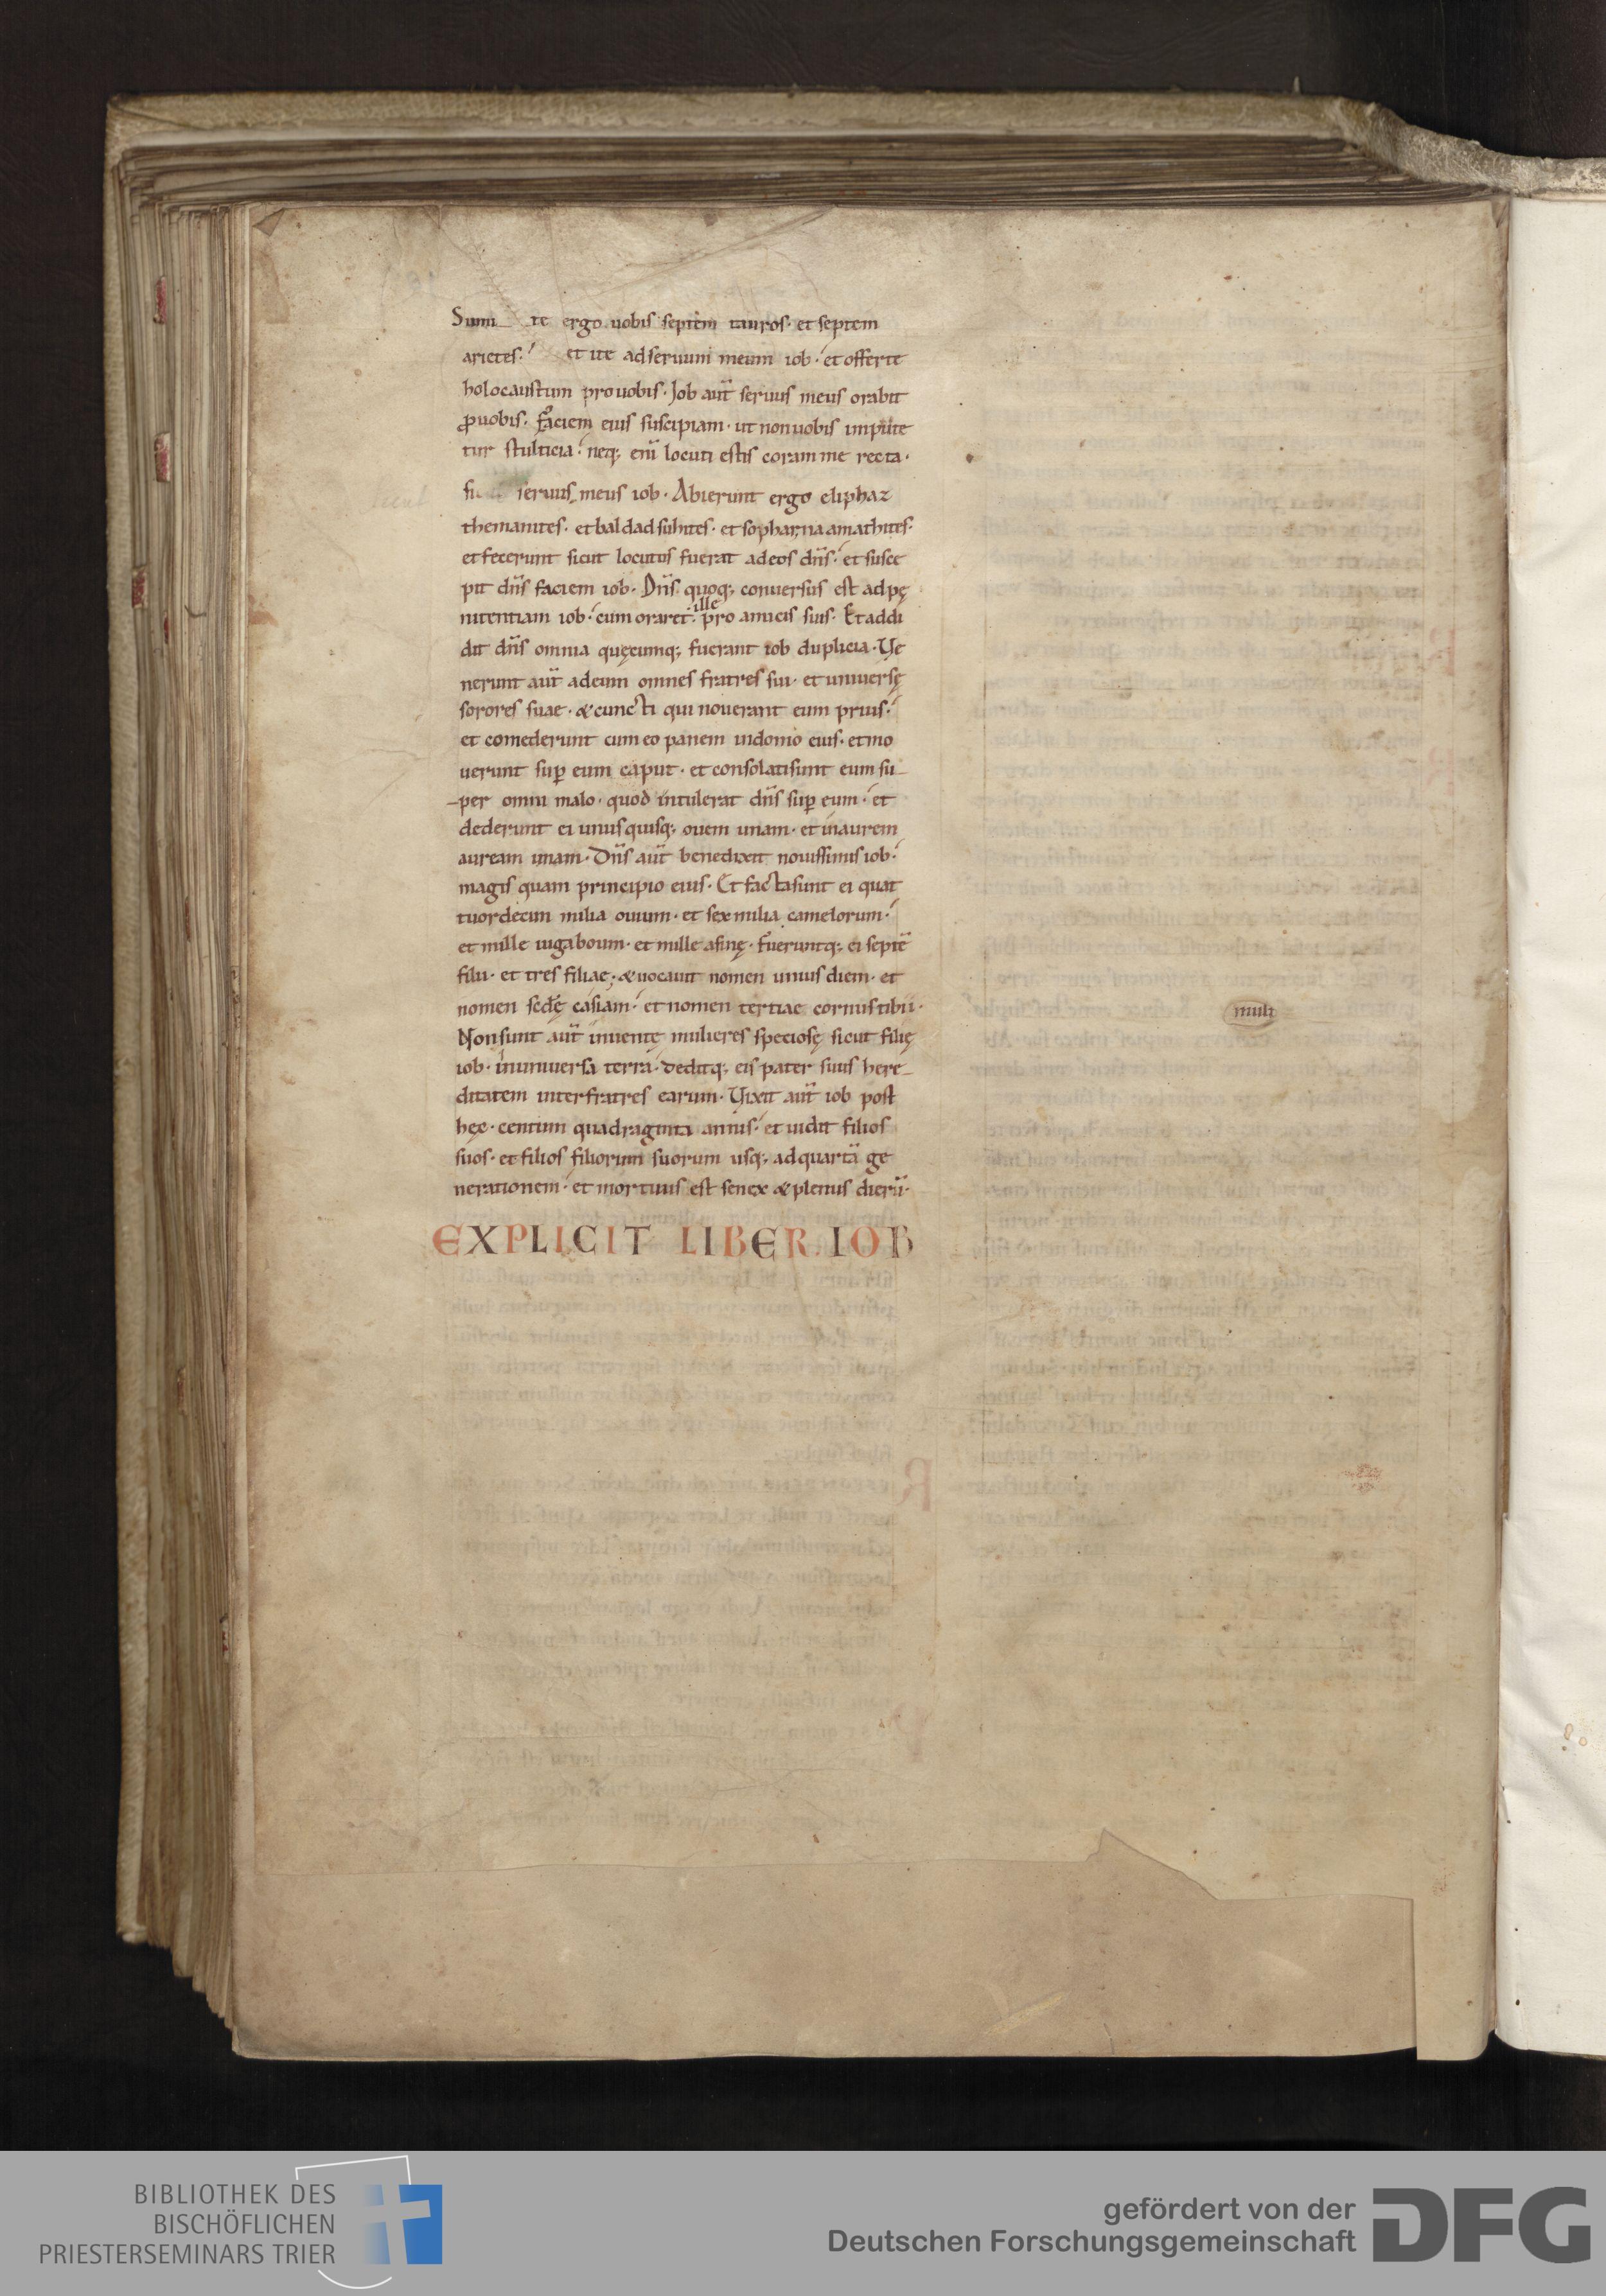 Sumite ergo uobis septem tauros· et septem
arietes· et ite ad seruum meum iob· et offerte
holocaustum pro uobis· Job aut̄ seruus meus orabit
ꝓ uobis· Faciem eius suscipiam· ut non uobis impute
tur stulticia· neq; eni̅ locuti estis coram me recta·
seruus meus iob· Abierunt ergo eliphaz
themanites· et baldad suhites· et sophar naamathites·
et fecerunt sicut locutus fuerat ad eos dn̅s· et susce
pit dn̅s faciem iob· Dn̅s quoq; conuersus est ad pę
nitentiam iob· cum oraret ille pro amicis suis· Et addi
dit dn̅s omnia quęcumq; fuerant iob duplicia· Ve
nerunt aut̄ ad eum omnes fratres sui· et uniuersę
sorores suae· & cuncti qui nouerant eum prius·
et comederunt cum eo panem in domo eius· et mo
uerunt sup̱ eum caput· et consolati sunt eum su-
-per omni malo· quod intulerat dn̅s sup̱ eum· et
dederunt ei unus quisq; ouem unam· et inaurem
auream unam· Dn̅s aut̄ benedixit nouissimis iob·
magis quam principio eius· Et facta sunt ei quat
tuordecim milia ouium· et sex milia camelorum·
et mille iuga boum· et mille asinę· Fueruntq; ei septe̅
filii· et tres filiae· & uocauit nomen unius diem· et
nomen scd̅ę casiam· et nomen tertiae cornu stibii·
Non sunt aut̄ inuentę mulieres speciosę sicut filię
iob· in uniuersa terra· deditq; eis pater suus here-
ditatem inter fratres earum· Vixit aut̄ iob post
hęc· centum quadraginta annis· et uidit filios
suos· et filios filiorum suorum usq; ad quarta̅ ge
nerationem· et mortuus est senex & plenus dieru̅·
EXPLICIT LIBER·IOB
muli
BIBLIOTHEK DES
BISCHÖFLICHEN
PRIESTERSEMINARS TRIER
gefördert von der
Deutschen Forschungsgemeinschaft
DFG